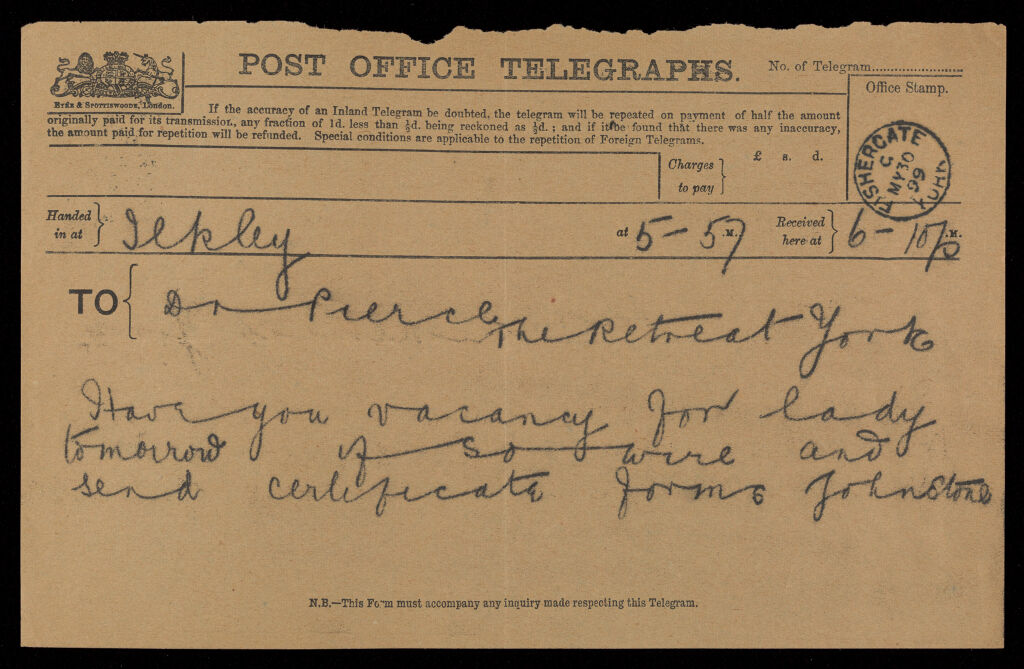 POST OFFICE TELEGRAPHS.
No. of Telegram
Office Stamp.
EYRE & SPOTTISWOODE, London.
If the accuracy of an Inland Telegram be doubted, the telegram will be repeated on payment of half the amount
originally paid for its transmission, any fraction of 1d. less than ½d. being reckoned as ½d.; and if it be found that there was any inaccuracy,
the amount paid for repetition will be refunded. Special conditions are applicable to the repetition of Foreign Telegrams.
Charges to pay } £ s. d.
FISHERGATE YORK
C
MY 30
99
Handed in at } Ilkley at 5-57 M. Received here at } 6-10 p M.
TO { Dr Pierce The Retreat York
Have you vacancy for lady
tomorrow if so wire and
send certificate forms Johnstone
N.B.—This Form must accompany any inquiry made respecting this Telegram.